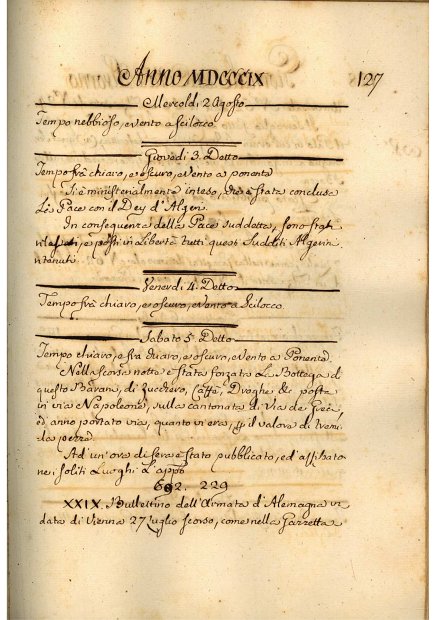 Anno MDCCCIX
127
Mercoldi 2 Agosto
Tempo nebbioso, e vento a Scilocco.
Giovedi 3. Detto
Tempo frà chiaro, e oscuro, e vento a ponente
Si è ministerialmente inteso, che è stata conclusa
La Pace con il Dey d'Algeri.
In conseguenza della Pace suddetta, sono stati
e posti in Libertà tutti questi Sudditi Algerin
Venerdi 4. Detto
Tempo frà chiaro, e oscuro, e vento a Scilocco.
Sabato 5. Detto
Tempo chiaro, e frà chiaro, e oscuro, e vento a Ponente.
Nella scorsa notte è stata forzata La Bottega di
questo Baram, di Zucchero, Caffè, Droghe & posta
in via Napoleone, sulla cantonata di Via de Greci,
ed anno portato via, quanto vi era, il valore di tremi
pezze.
Ad un'ora di sera è stato pubblicato, ed affisato
nei soliti Luoghi L'app.
692. 229
XXIX. Bullettino dell'Armata d'Alemagna in
data di Vienna 27 Luglio scorso, come nella Gazzetta